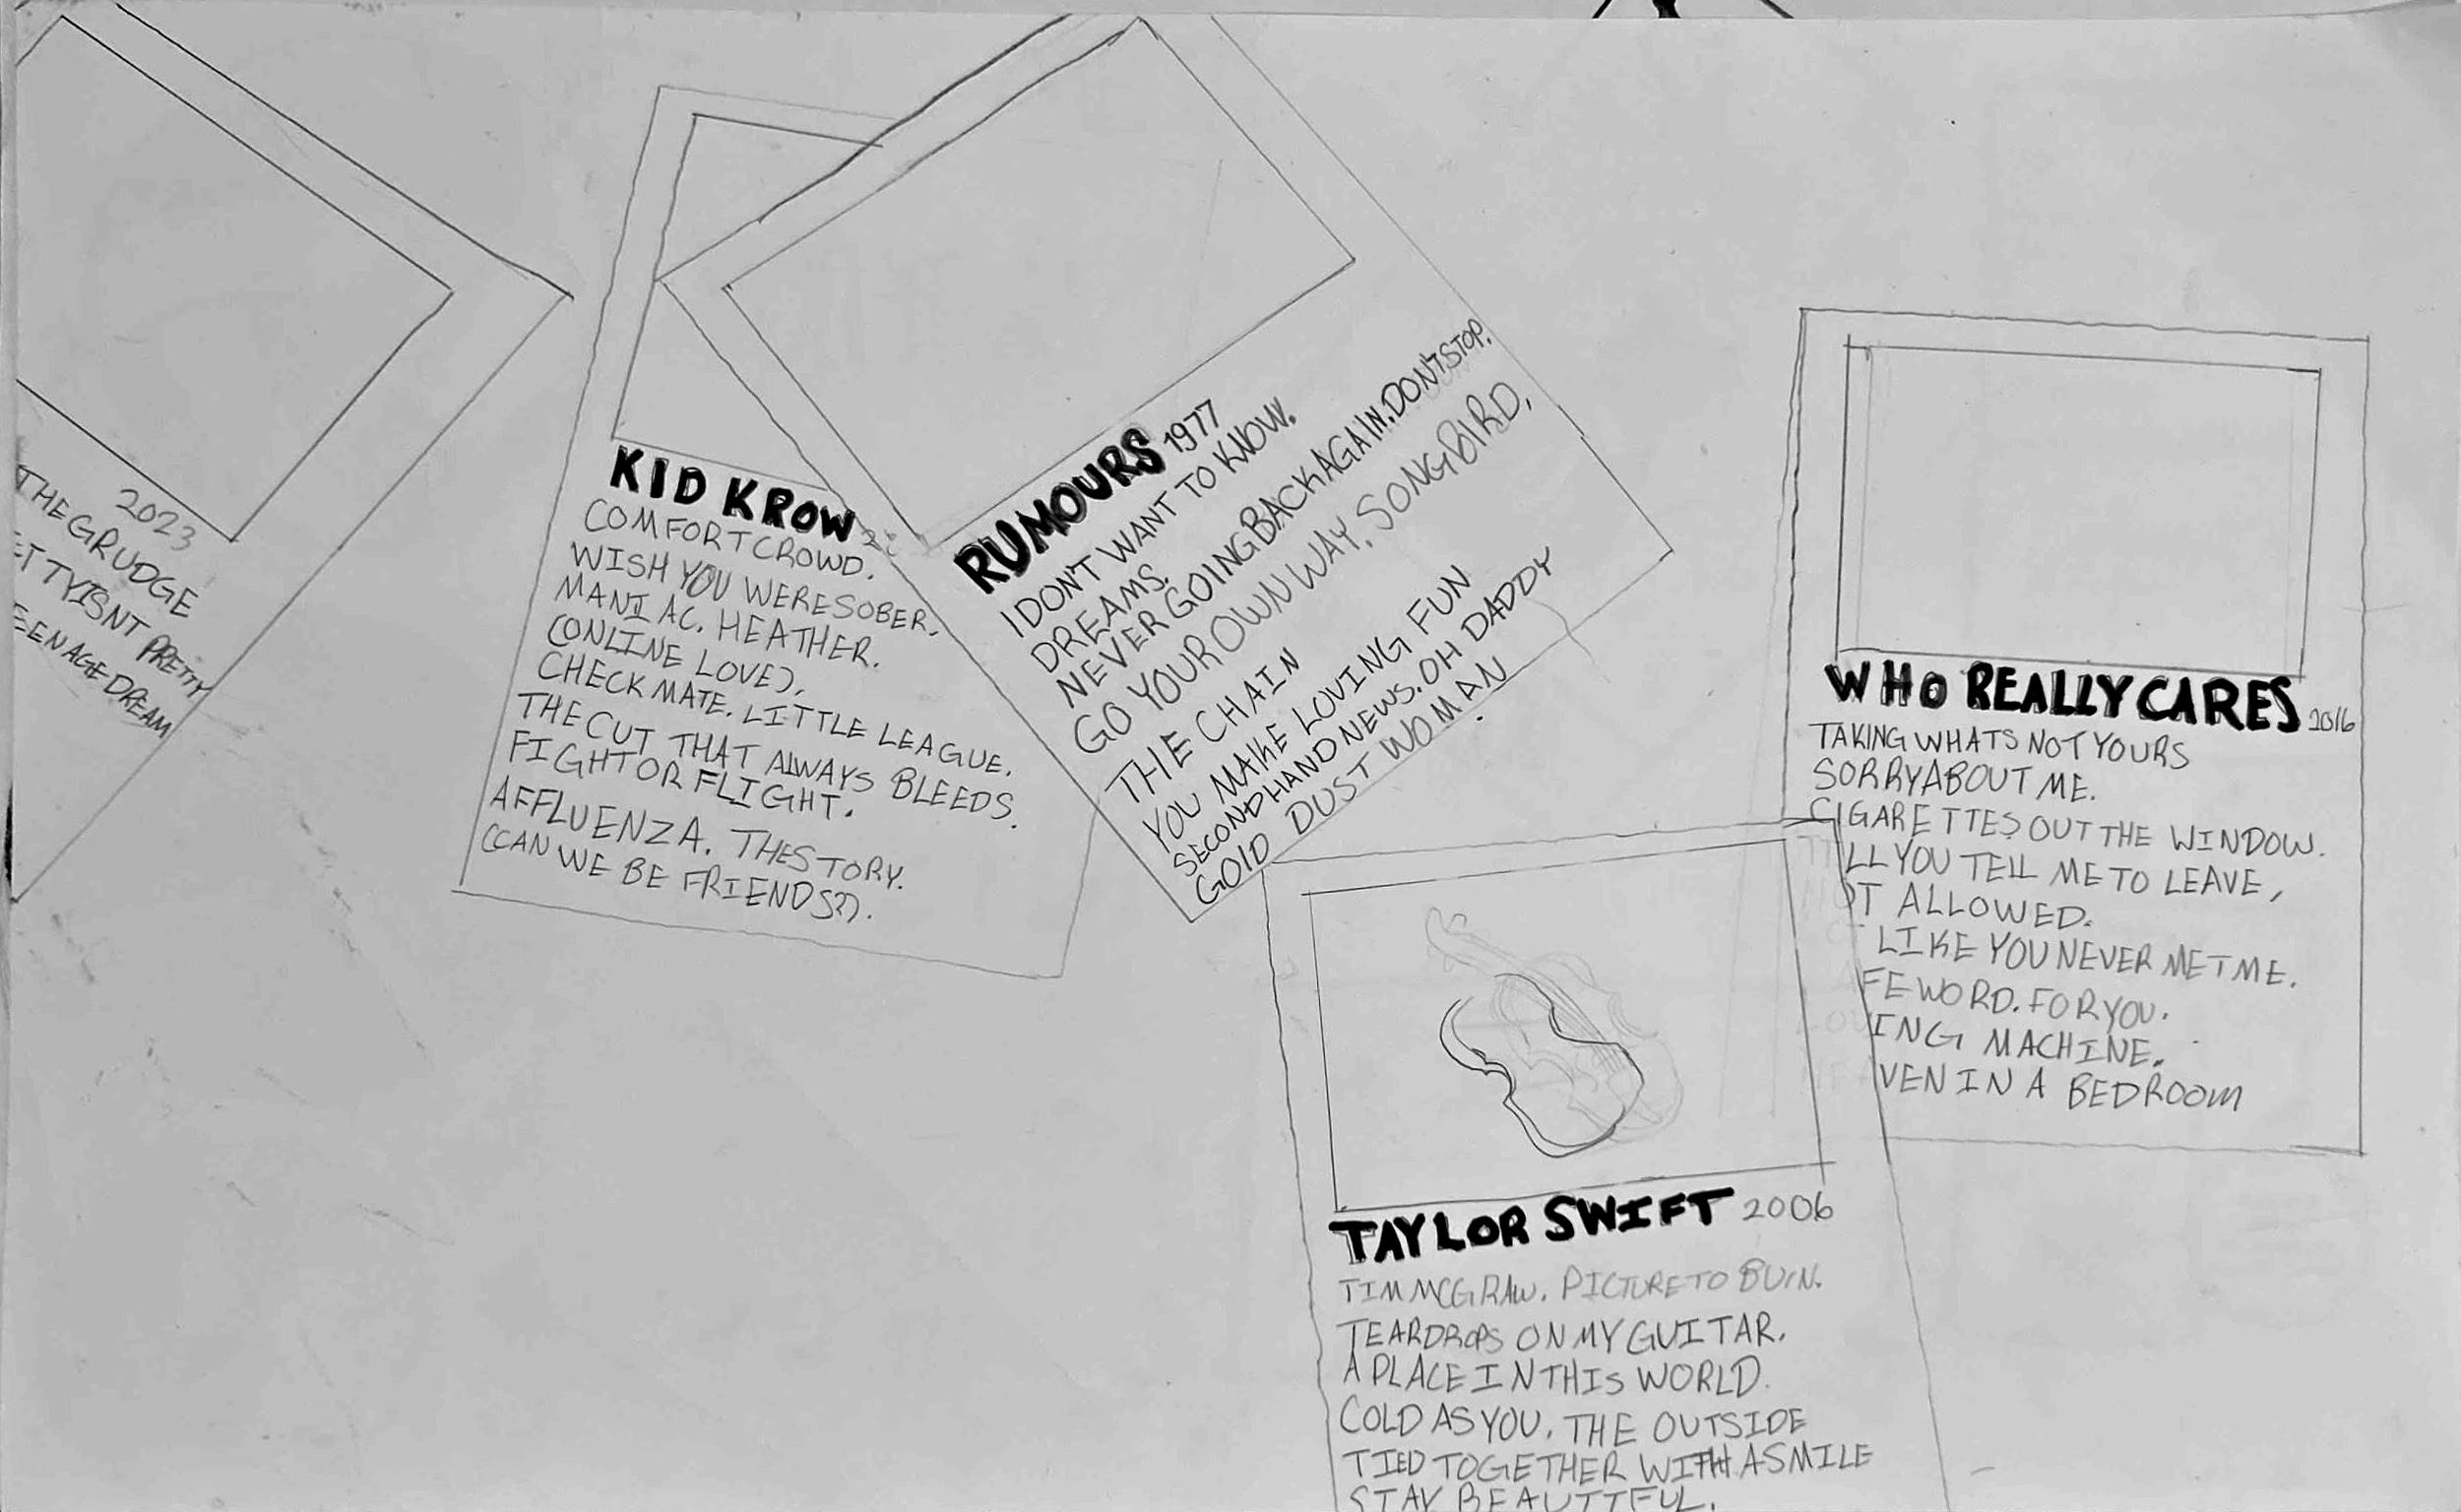 2023
THE GRUDGE
ETTY ISNT PRETTY
EENAGE DREAM
KID KROW
COMFORT CROWD.
WISH YOU WERE SOBER.
MANIAC. HEATHER.
(ONLINE LOVE).
CHECKMATE. LITTLE LEAGUE.
THE CUT THAT ALWAYS BLEEDS.
FIGHT OR FLIGHT.
AFFLUENZA. THE STORY.
(CAN WE BE FRIENDS?).
RUMOURS 1977
I DON'T WANT TO KNOW.
DREAMS.
NEVER GOING BACK AGAIN. DON'T STOP.
GO YOUR OWN WAY. SONGBIRD.
THE CHAIN
YOU MAKE LOVING FUN
SECOND HAND NEWS. OH DADDY
GOLD DUST WOMAN.
WHO REALLY CARES 2016
TAKING WHATS NOT YOURS
SORRY ABOUT ME.
CIGARETTES OUT THE WINDOW.
LL YOU TELL ME TO LEAVE,
OT ALLOWED.
LIKE YOU NEVER MET ME.
FE WORD. FOR YOU.
ING MACHINE.
VEN IN A BEDROOM
TAYLOR SWIFT 2006
TIM MCGRAW. PICTURE TO BUIN.
TEARDROPS ON MY GUITAR.
A PLACE IN THIS WORLD.
COLD AS YOU. THE OUTSIDE
TIED TOGETHER WITH A SMILE
STAY BEAUTIFUL.